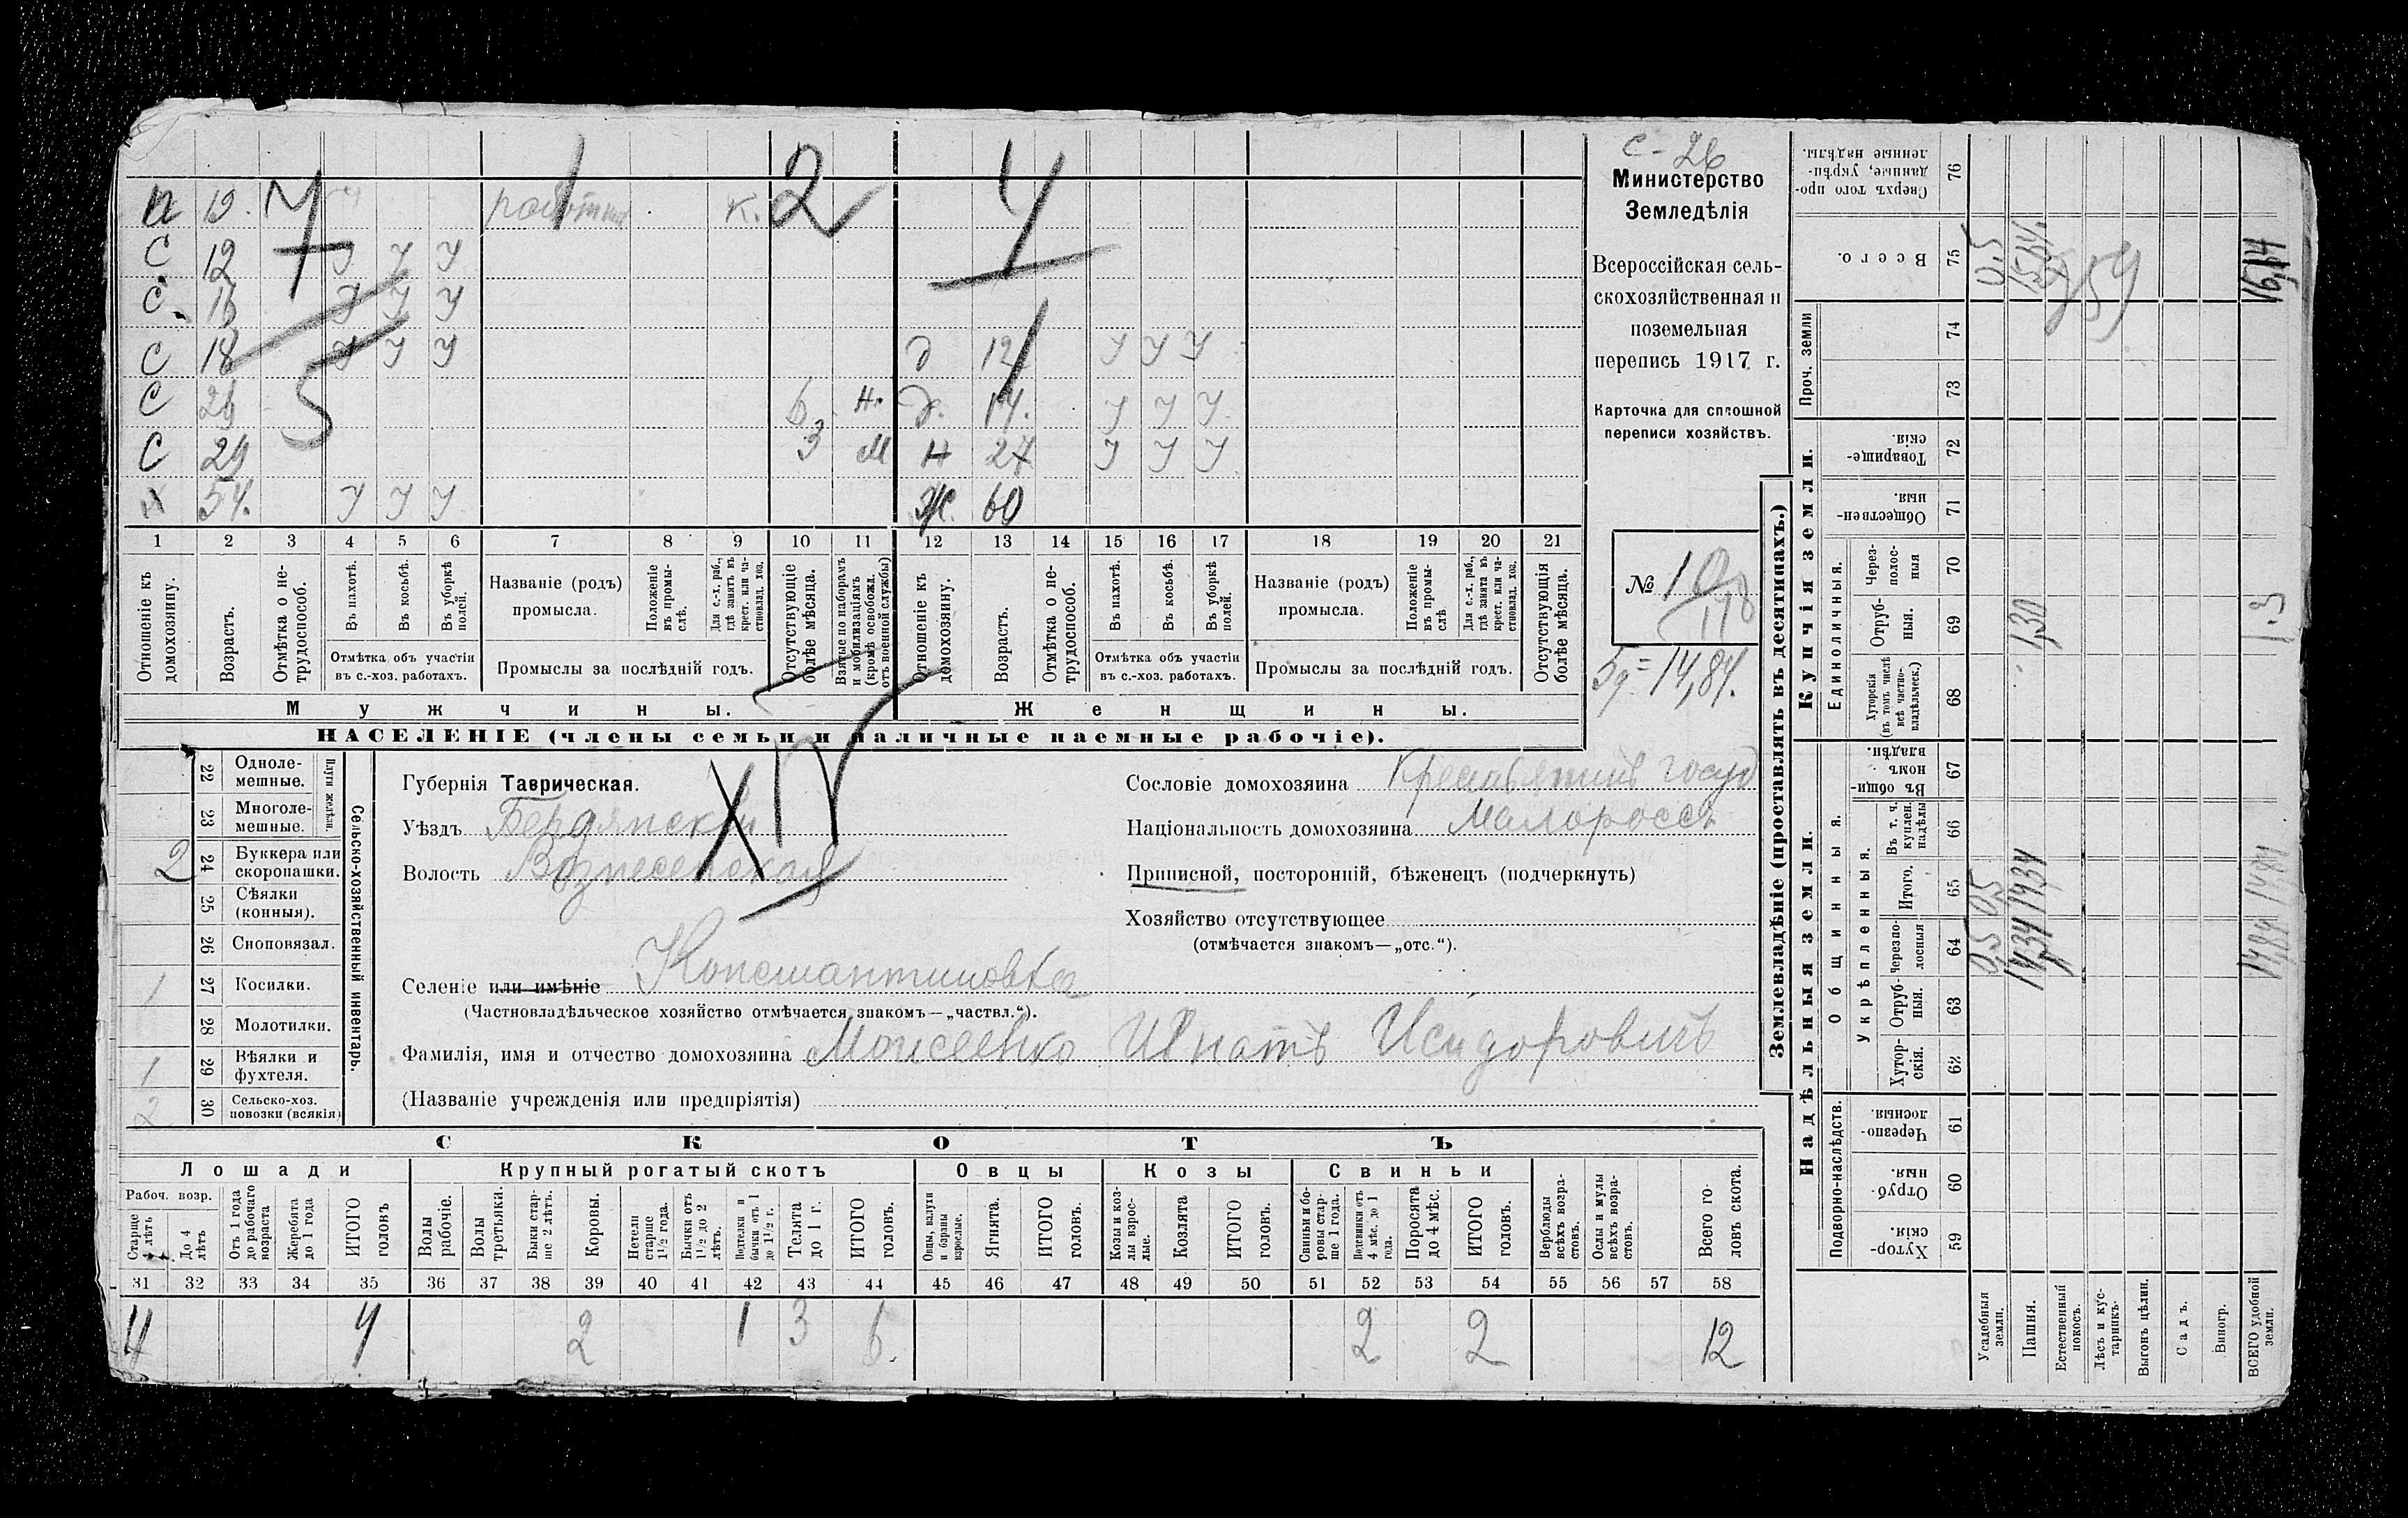 с - 26
Министерство
Земледѣлія
Всероссійская сель-
скохозяйственная и
поземельная
перепись 1917 г.
Карточка для сплошной
переписи хозяйствъ.
№ 10
118
5д = 14,84.
1 2 4
19. 7 к.
С 12 У У У
С. 16 У У У
С 18 У У У д 12 У У У
С 5 Н. д. 14. У У У
С 29 З М Н 27 У У У
Х 54. У У У Ж. 60
1 2 3 4 5 6 7 8 9 10 11 12 13 14 15 16 17 18 19 20 21
Отношеніе къ домохозяину.
Возрастъ.
Отмѣтка о не-трудоспособ.
Въ пахотѣ.
Въ косьбѣ.
Въ уборкѣ полей.
Отмѣтка объ участіи
въ с.-хоз. работахъ.
Названіе (родъ)
промысла.
Положеніе въ промы-слѣ.
Для с.-х. раб., гдѣ занятъ въ крест. или ча-стновлад. хоз.
Промыслы за послѣдній годъ.
Отсутствующіе болѣе мѣсяца.
Взятые по наборамъ и мобилизаціямъ (кромѣ освобожд. отъ военной службы)
Отношеніе къ домохозяину.
Возрастъ.
Отмѣтка о не-трудоспособ.
Въ пахотѣ.
Въ косьбѣ.
Въ уборкѣ полей.
Отмѣтка объ участіи
въ с.-хоз. работахъ.
Названіе (родъ)
промысла.
Положеніе въ промы-слѣ
Для с.-х. раб., гдѣ занята въ крест. или ча-стновлад. хоз.
Промыслы за послѣдній годъ.
Отсутствующія болѣе мѣсяца.
Мужчины. Женщины.
НАСЕЛЕНІЕ (члены семьи и наличные наемные рабочіе).
XIV
Губернія Таврическая.
Уѣздъ Бердянскій
Волость Вознесенская
Селеніе или имѣніе Константиновка
(Частновладѣльческое хозяйство отмѣчается знакомъ—„частвл.“).
Фамилія, имя и отчество домохозяина Моисеенко Игнатъ Исидоровичъ
(Названіе учрежденія или предпріятія)
Сословіе домохозяина Крестьянинъ госуд
Національность домохозяина Малороссъ
Приписной, посторонній, бѣженецъ (подчеркнуть)
Хозяйство отсутствующее
(отмѣчается знакомъ—„отс.“).
Сельско-хозяйственный инвентарь.
Плуги желѣзн.
22 Одноле-мешные.
23 Многоле-мешные.
2 24 Буккера или скоропашки.
25 Сѣялки (конныя).
26 Сноповязал.
1 27 Косилки.
28 Молотилки.
1 29 Вѣялки и фухтеля.
2 30 Сельско-хоз. повозки (всякія)
СКОТЪ
Лошади Крупный рогатый скотъ Овцы Козы Свиньи
Рабоч. возр.
Старше 4 лѣтъ
До 4 лѣтъ
Отъ 1 года до рабочаго возраста
Жеребята до 1 года
ИТОГО головъ
Волы рабочіе.
Волы третьяки.
Быки стар-ше 2 лѣтъ.
Коровы.
Нетели старше 1½ года.
Бычки отъ 1½ до 2 лѣтъ.
Подтелки и бычки отъ 1 до 1½ г.
Телята до 1 г.
ИТОГО головъ.
Овцы, валухи и бараны взрослые.
Ягнята.
ИТОГО головъ.
Козы и коз-лы взрос-лые.
Козлята
ИТОГО головъ.
Свиньи и бо-ровы стар-ше 1 года.
Подсвинки отъ 4 мѣс. до 1 года.
Поросята до 4 мѣс.
ИТОГО головъ.
Верблюды всѣхъ возра-стовъ.
Ослы и мулы всѣхъ возра-стовъ.
Всего го-ловъ скота.
31 32 33 34 35 36 37 38 39 40 41 42 43 44 45 46 47 48 49 50 51 52 53 54 55 56 57 58
4 4 2 1 3 6. 2 2 12
Землевладѣніе (проставлять въ десятинахъ.)
Надѣльныя земли. Купчія земли.
Подворно-наслѣдств.
Общинныя.
Укрѣпленныя.
Единоличныя.
Проч. земли
Сверхъ того про-данные, укрѣп-ленные надѣлы. 76
Всего. 75
74
73
Товарище-скія. 72
Обществен-ныя. 71
Через-полос-ныя 70
Отруб-ныя. 69
Хуторскія (въ томъ числѣ всѣ частно-владѣльческ.) 68
Въ общи-номъ владѣн. 67
Въ т. ч. куплен. надѣлы 66
Итого. 65
Черезпо-лосныя 64
Отруб-ныя. 63
Хутор-скія. 62
Черезпо-лосныя. 61
Отруб-ныя. 60
Хутор-скія. 59
Усадебныя земли. 0,5 0,5 0,5
Пашня. 14,34 14,34 1,30
Естественный покосъ.
Лѣсъ и кус-тарникъ.
Выгонъ цѣлин.
Садъ.
Виногр.
ВСЕГО удобной земли. 14,84 14,84 1.3 16,14
59